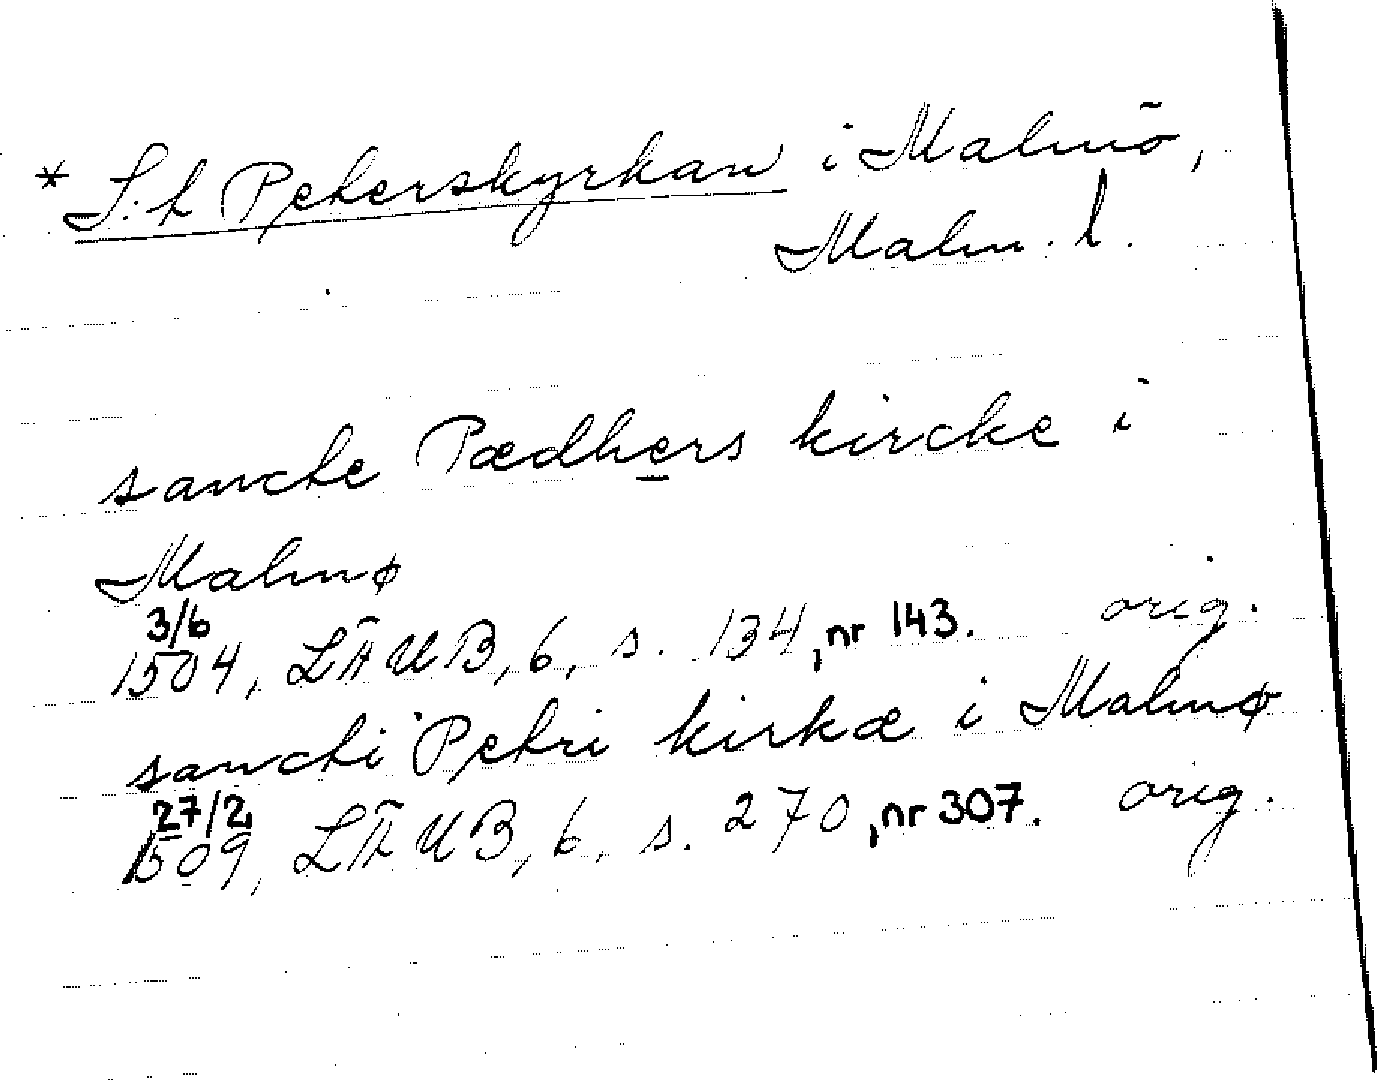 * S:t Peterskyrkan i Malmö,
Malm. l.
sancte Pædhers kircke i
Malmø
3/6
1504, LÄUB, 6, s. 134, nr 143. orig.
sancti Petri kirkæ i Malmø
27/2
1509, LÄUB, 6, s. 270, nr 307. orig.